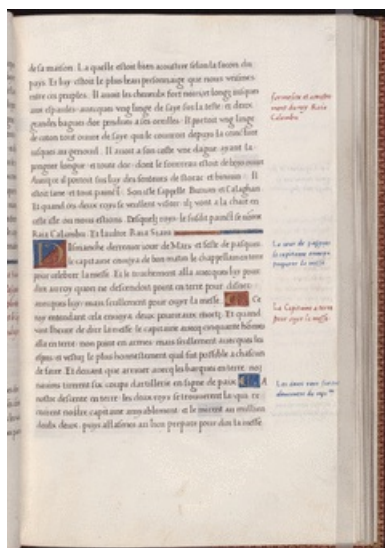 de sa maison. La quelle estoit bien acoustree selon la facon du
pays. Et luy estoit le plus beau personnaige que nous veismes
entre ces peuples. Il auoit les cheueulx fort noirs et longs iusques
aux espaules auecques vng linge de saye sus la teste et deux
grandes bagues dor pendans a ses oreilles. Il portoit vng linge
de coton tout couure de saye que le couuroit depuys la
iusques au genoul. Il auoit a son coste vne dague ayant la
longue et toute dor dont le fourreau estoit de boys
Auecq ce il portoit sus luy des senteurs de storac et beniouin. Il
estoit et tout painct. Son isle sappelle Butuan et Calaghan
Et quand ces deux roys se veullent visiter ilz vont a la chace en
celle isle ou nous estions. Desquelz roys le susdit painct se nome
Raia Calambu Et laultre Raia Siani
Dimanche dernier iour de Mars et feste de pasques
le capitaine enuoya de bon matin le chappellain en terre
pour celebrer la messe. Et le truchement alla auecques luy pour
dire au roy quon ne descendoit point en terre pour disner
auecques luy mais seullement pour ouyr la messe. Ce
roy entendant cela enuoya deux pourceaux mortz. Et quand
vint lheure de dire la messe le capitaine auecq cinquante hommes
alla en terre non point en armes mais seullement auecques les
espees et vestuz le plus honnestement quil fut possible a chascun
de faire. Et deuant que arriuer auecq les barques en terre noz
nauires tirerent six coups dartillerie en signe de paix. A
nostre descente en terre les deux roys se trouuerent la qui
nostre capitaine amyablement et le mirent au millieu
deulx deux puys allasmes au lieu prepare pour dire la messe
du roy Raia
Calambu
Le iour de pasques
le capitaine enuoya
preparer la messe
Le Capitaine a terre
pour ouyr la messe
Les deux roys